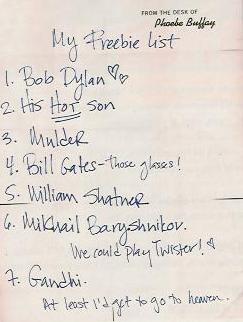 FROM THE DESK OF
Phoebe Buffay
My Freebie List
1. Bob Dylan
2. His HOT son
3. Mulder
4. Bill Gates - those glasses!
5. William Shatner
6. Mikhail Baryshnikov.
We could play Twister!
7. Gandhi.
At least I'd get to go to heaven.